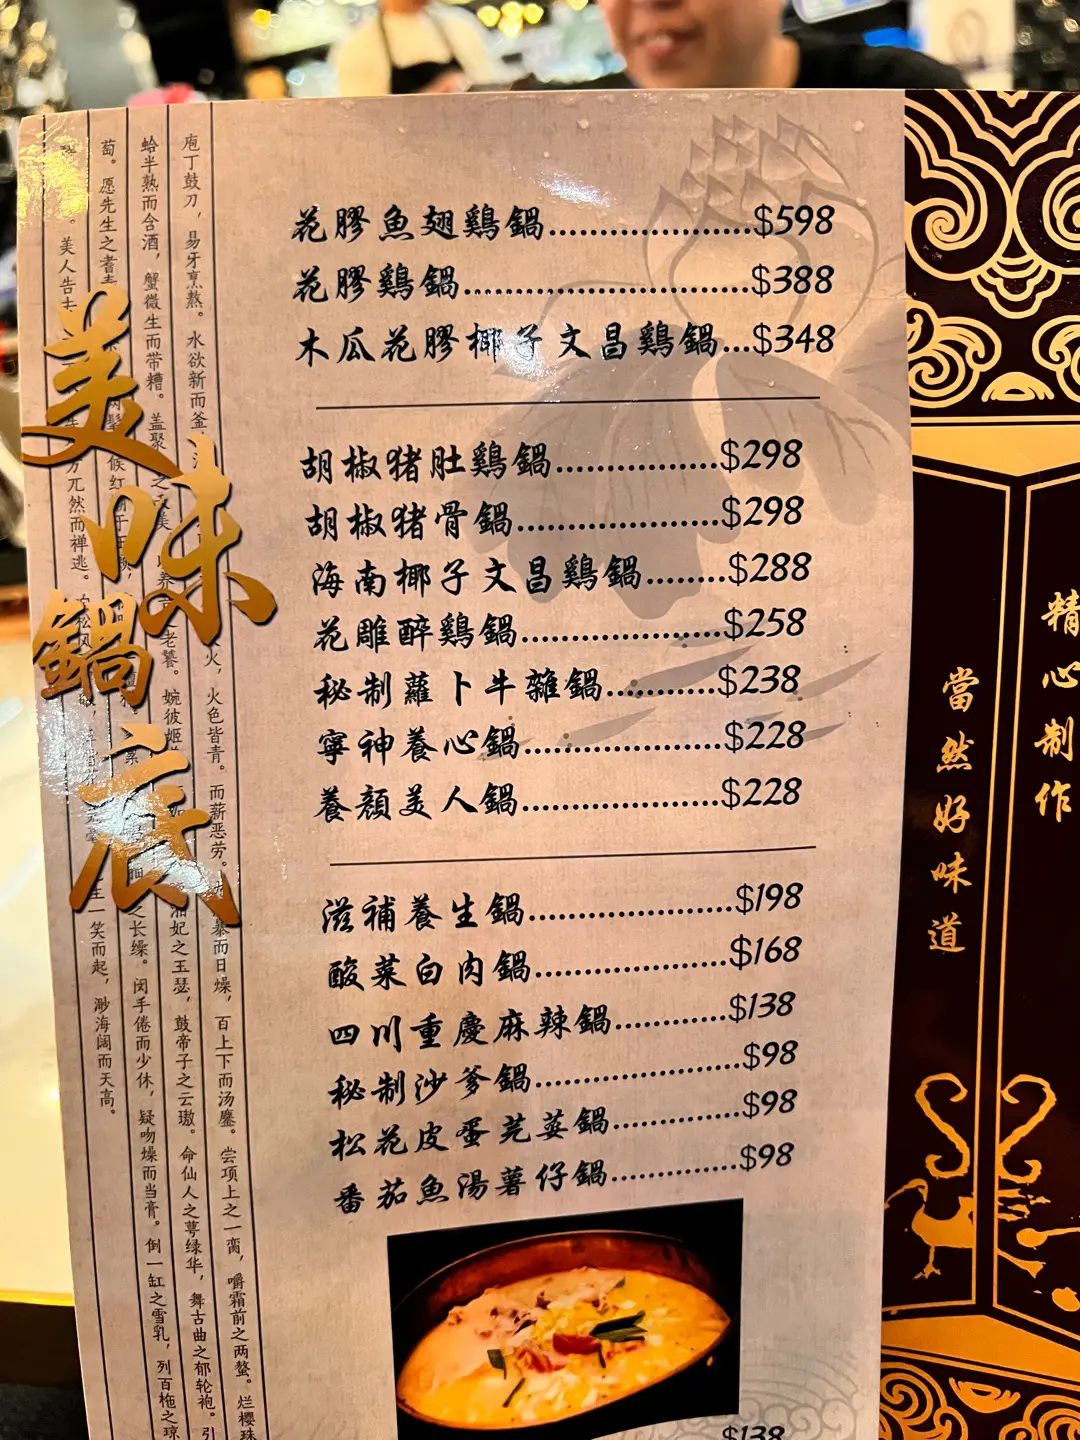 美味鍋底
花膠魚翅鷄鍋......................$598
花膠鷄鍋................................$388
木瓜花膠椰子文昌鷄鍋...$348
胡椒猪肚鷄鍋..................$298
胡椒猪骨鍋......................$298
海南椰子文昌鷄鍋........$288
花雕醉鷄鍋......................$258
秘制蘿卜牛雜鍋............$238
寧神養心鍋......................$228
養顔美人鍋......................$228
滋補養生鍋......................$198
酸菜白肉鍋.....................$168
四川重慶麻辣鍋............$138
秘制沙爹鍋.....................$98
松花皮蛋芫荽鍋.............$98
番茄魚湯薯仔鍋.............$98
$138
精心制作
當然好味道
庖丁鼓刀，易牙烹熬。水欲新而釜
火，火色皆青。而薪恶劳。
暴而日燥，百上下而汤鏖。尝项上之一脔，嚼霜前之两螯。烂樱珠
蛤半熟而含酒，蟹微生而带糟。盖聚
之美
养
之老饕。婉彼姬
湘妃之玉瑟，鼓帝子之云璈。命仙人之萼绿华，舞古曲之郁轮袍。引
萄。愿先生之耆
候红
之长缲。闵手倦而少休，疑吻燥而当膏。倒一缸之雪乳，列百柂之琼
美人告去
兀然而禅逃。
松风
生一笑而起，渺海阔而天高。